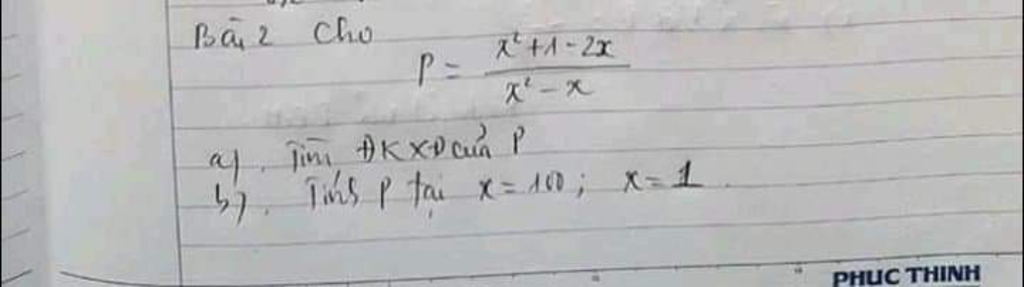 Bài 2 Cho
P = \frac{x²+1-2x}{x²-x}
a). Tìm ĐKXĐ của P
b). Tính P tại x = 100; x = 1.
PHUC THINH